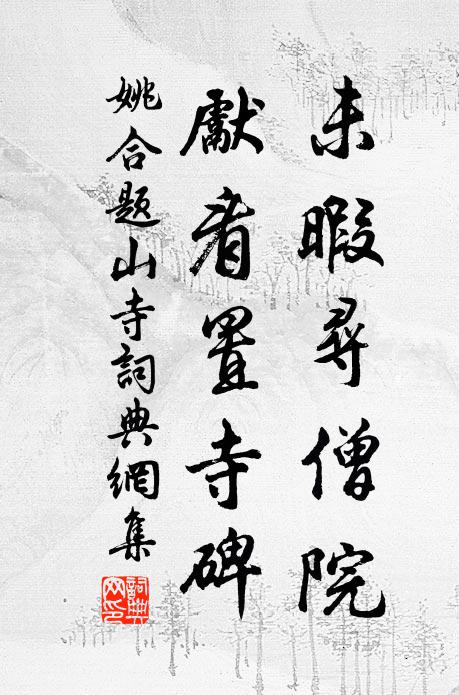 未暇尋僧院
獻看置寺碑
姚合題山寺詞典網集
詞典网印